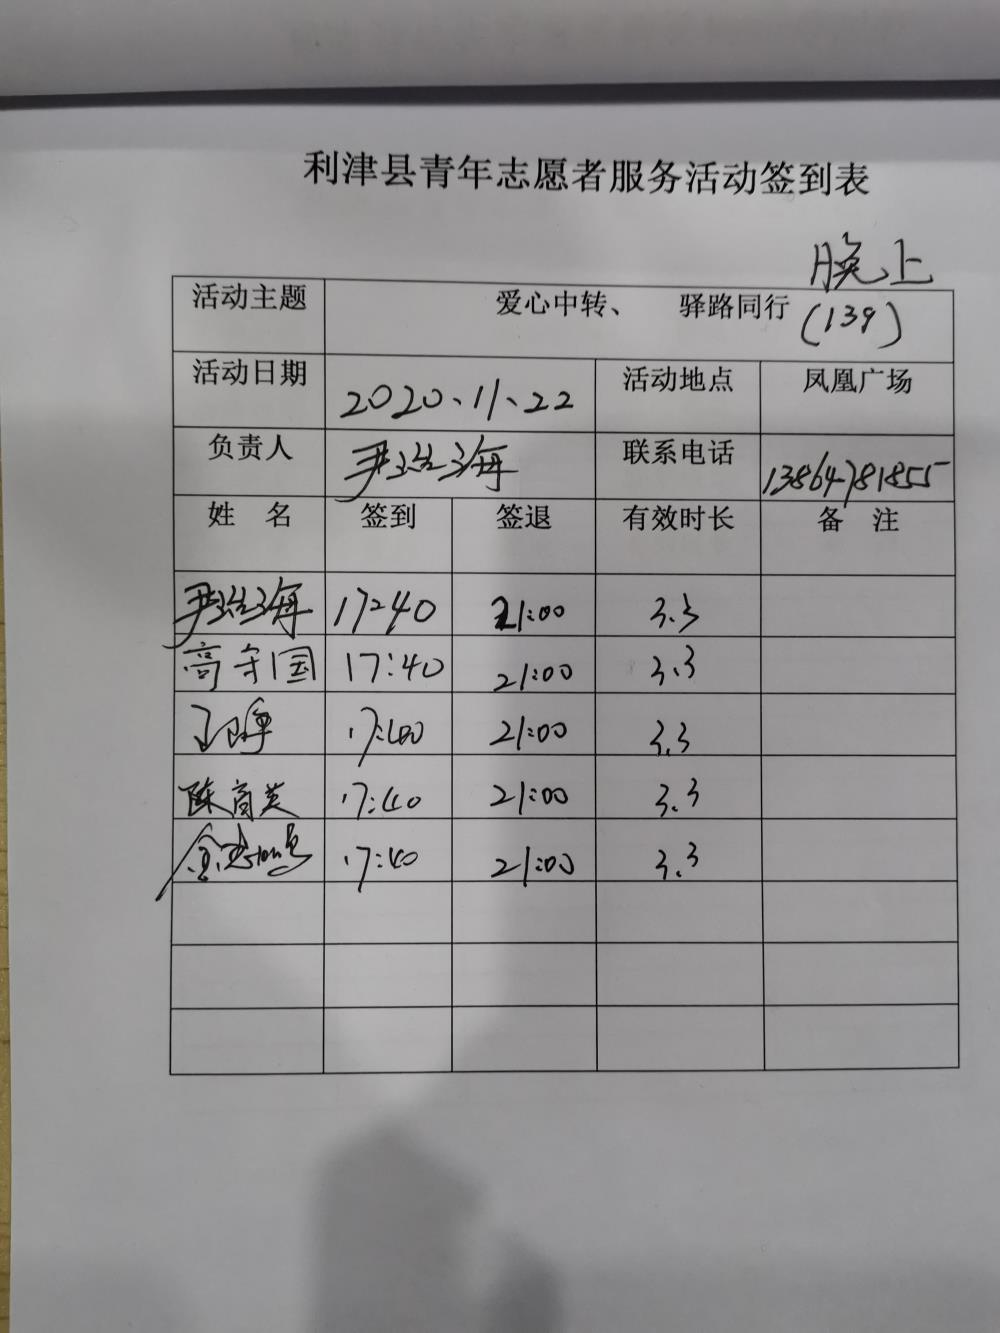 利津县青年志愿者服务活动签到表
晚上
活动主题 爱心中转、 驿路同行 (139)
活动日期 2020、11、22 活动地点 凤凰广场
负责人 尹海 联系电话 13864781855
姓 名 签到 签退 有效时长 备 注
尹海 17:40 21:00 3.3
高守国 17:40 21:00 3.3
17:40 21:00 3.3
陈育英 17:40 21:00 3.3
17:40 21:00 3.3